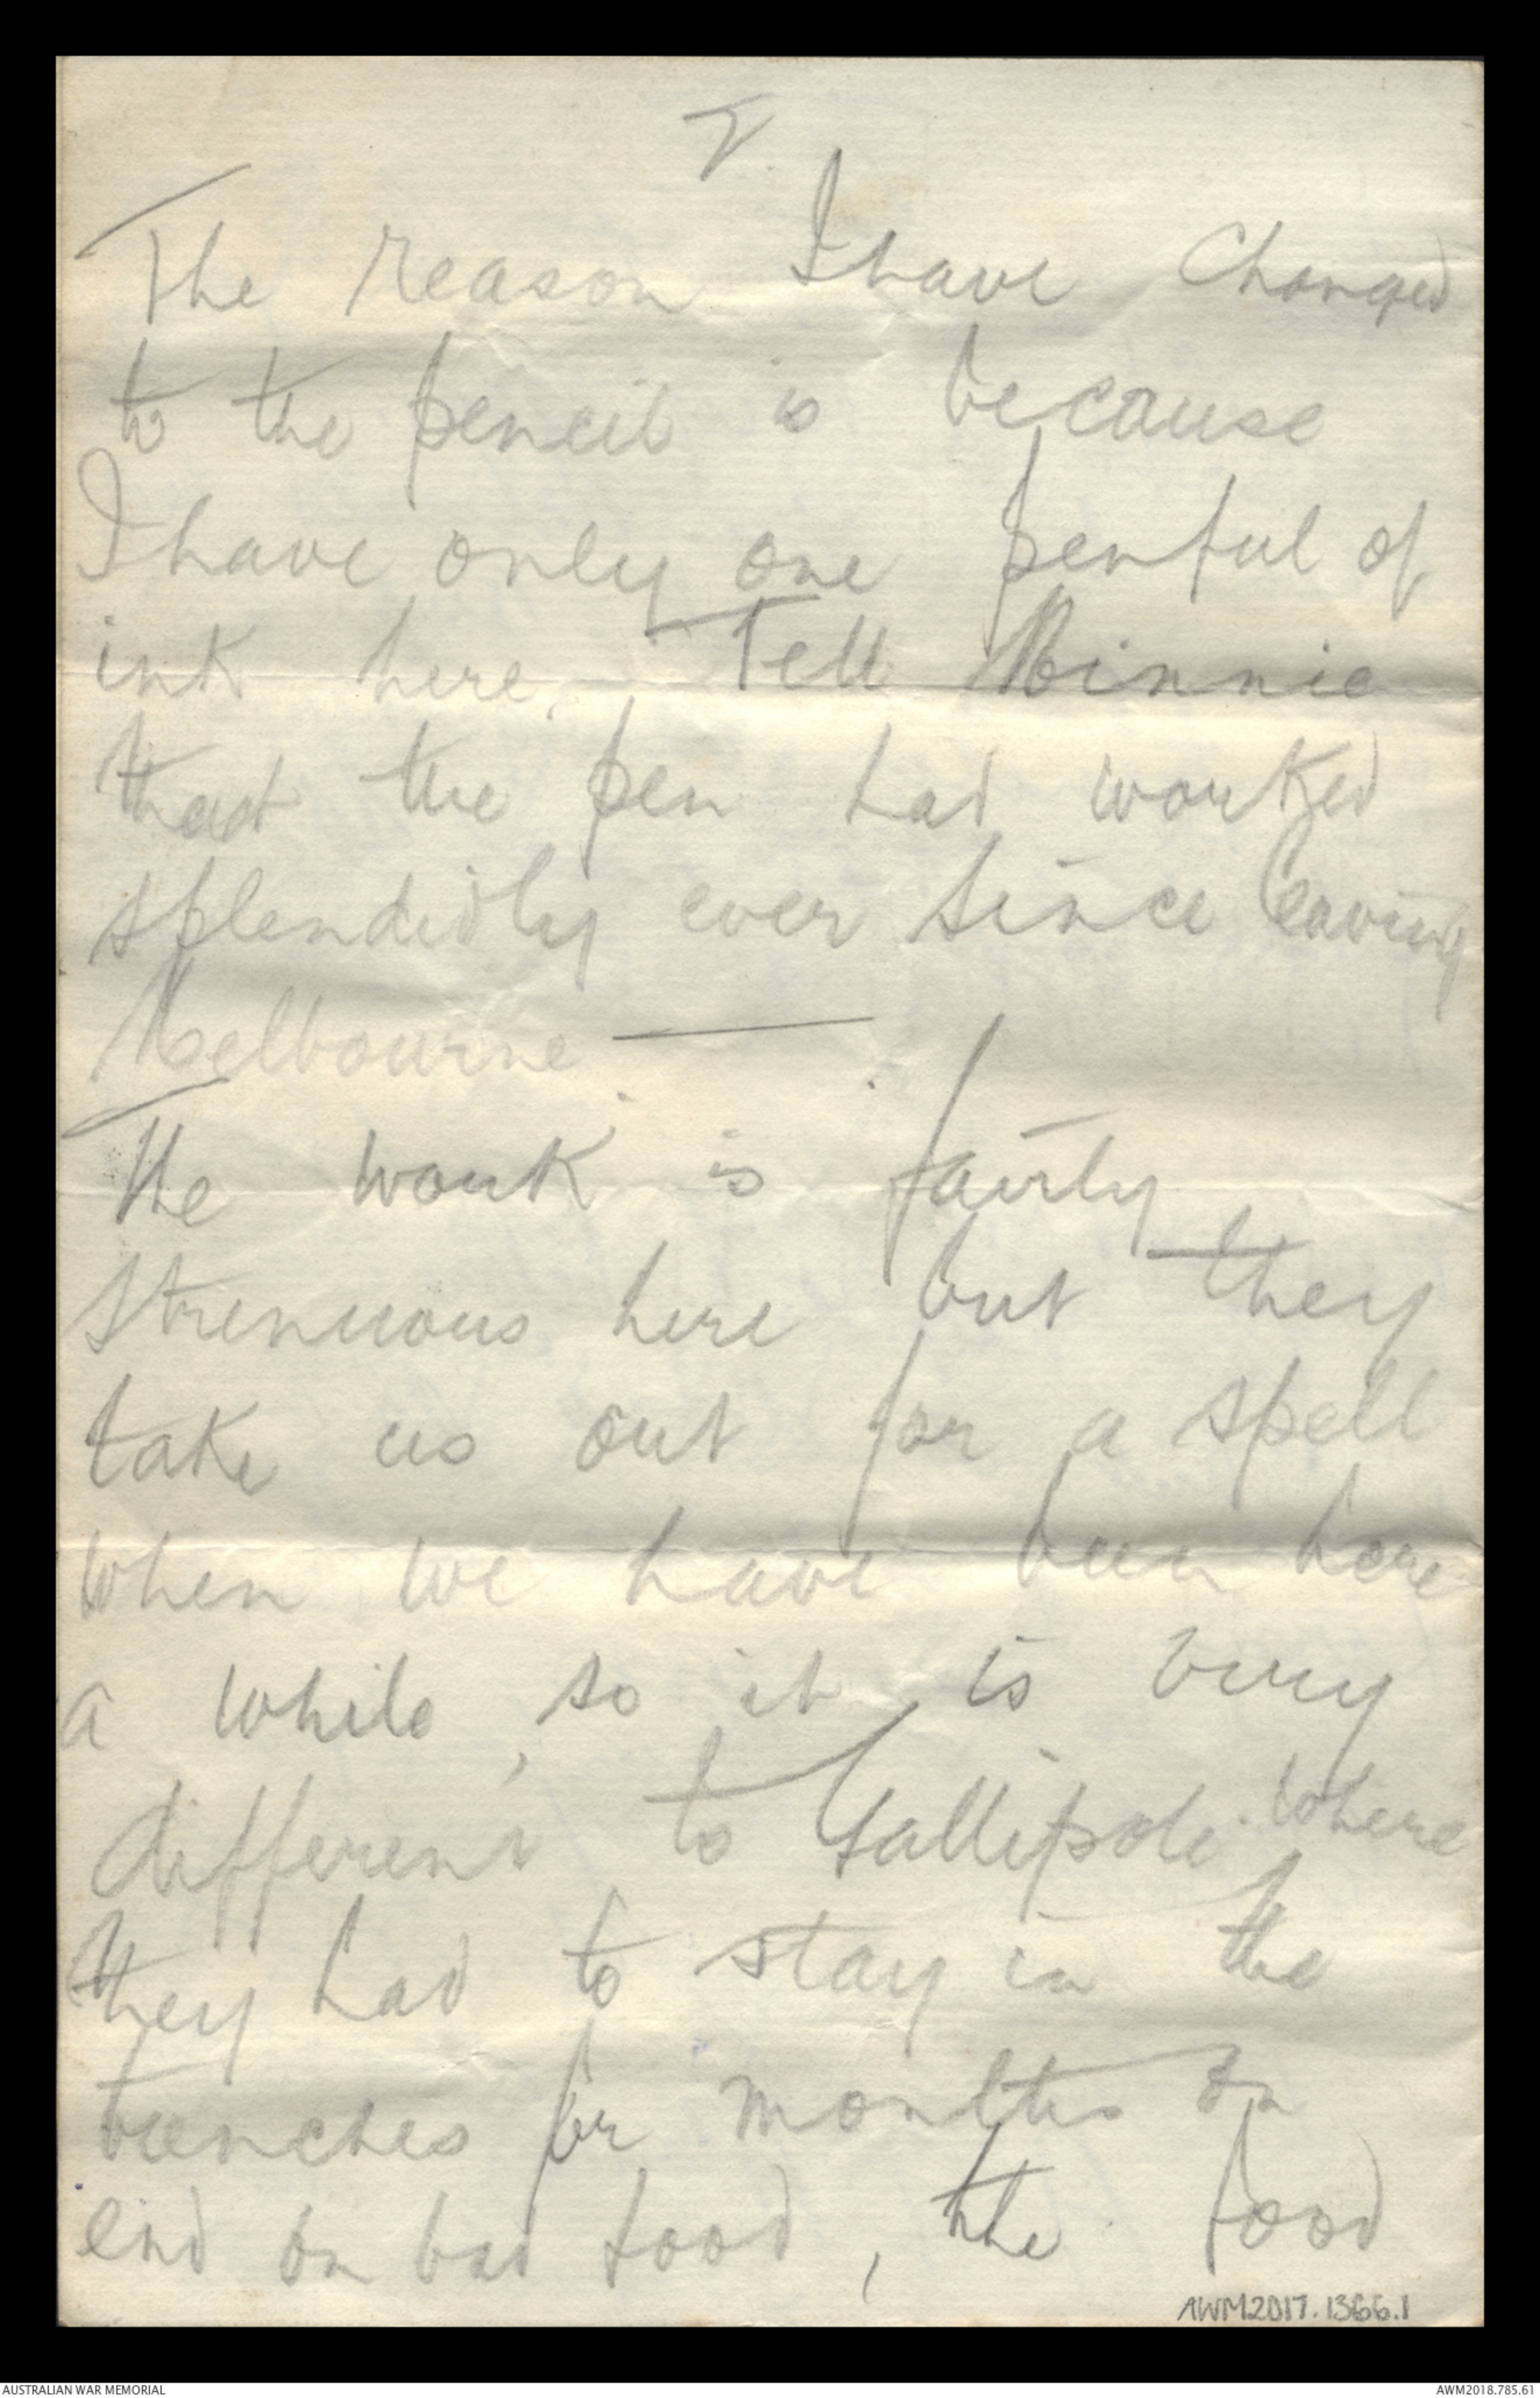 2.
The reason I have changed
to the pencil is because
I have only one penful of
ink here. Tell Minnie
that the pen had worked
splendidly ever since leaving
Melbourne —
The work is fairly
strenuous here but they
take us out for a spell
when we have been here
a while, so it is very
different to Gallipoli where
they had to stay in the
trenches for months on
end on bad food, the food
AWM2017.1366.1
AUSTRALIAN WAR MEMORIAL
AWM2018.785.61